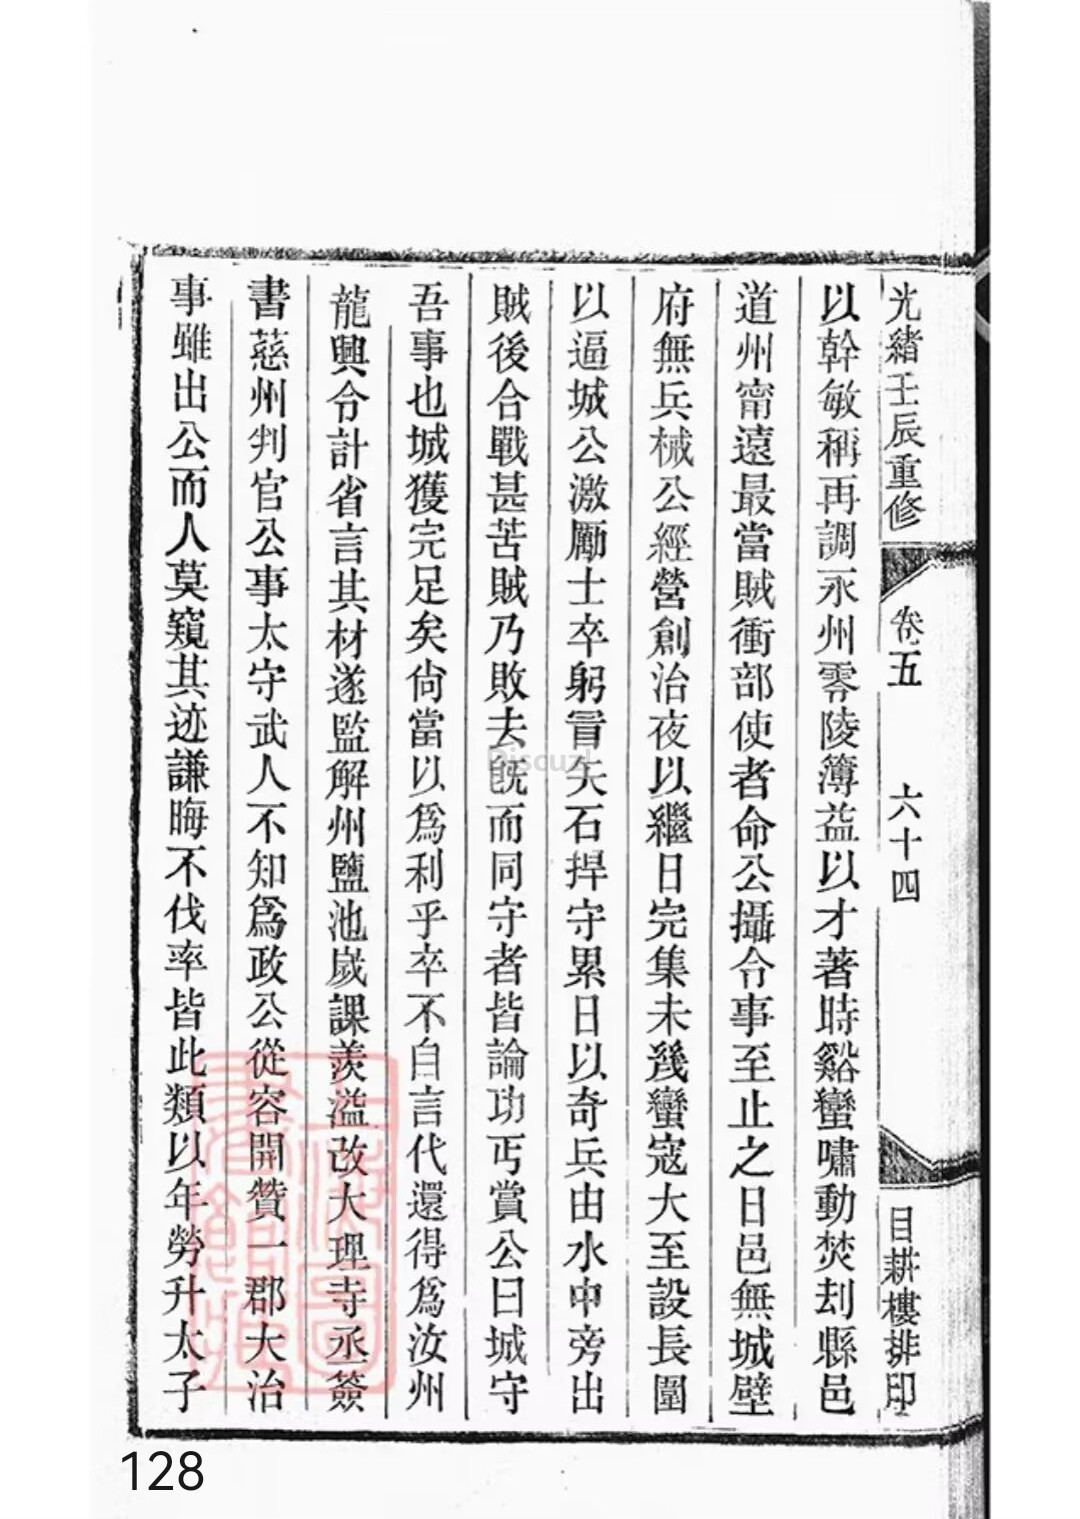 光緒壬辰重修 卷五 六十四 目耕樓排印
以幹敏稱再調永州零陵簿益以才著時谿蠻嘯動焚刦縣邑
道州甯遠最當賊衝部使者命公攝令事至止之日邑無城壁
府無兵械公經營創治夜以繼日完集未幾蠻寇大至設長圍
以逼城公激勵士卒躬冒矢石捍守累日以奇兵由水中旁出
賊後合戰甚苦賊乃敗去旣而同守者皆論功丐賞公曰城守
吾事也城獲完足矣尙當以爲利乎卒不自言代還得爲汝州
龍興令計省言其材遂監解州鹽池歲課羨溢改大理寺丞簽
書慈州判官公事太守武人不知爲政公從容開贊一郡大治
事雖出公而人莫窺其迹謙晦不伐率皆此類以年勞升太子
Discuz!
128